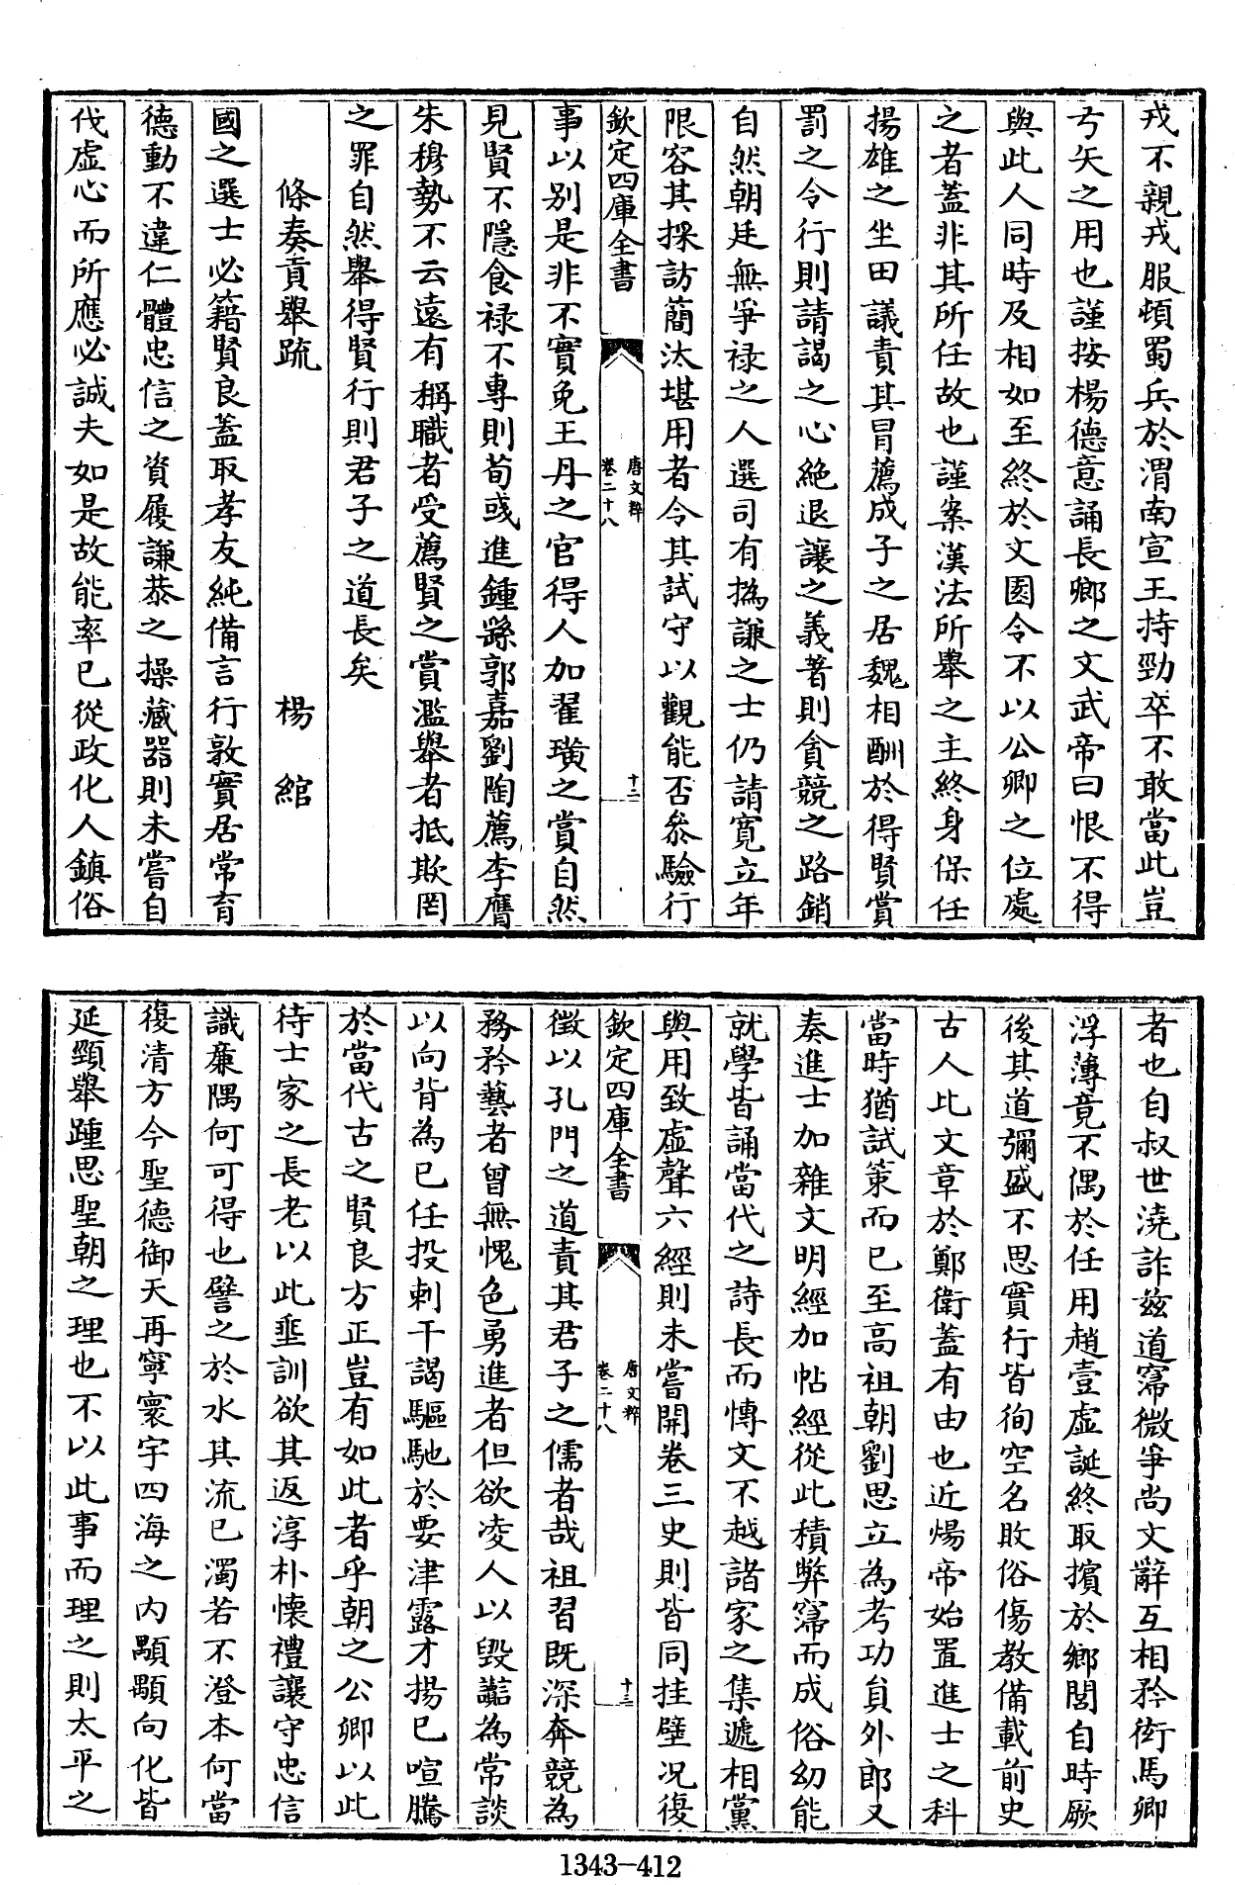 戎不親戎服頓蜀兵於渭南宣王持勁卒不敢當此豈
弓矢之用也謹按楊德意誦長鄉之文武帝曰恨不得
與此人同時及相如至終於文園令不以公卿之位處
之者蓋非其所任故也謹案漢法所舉之主終身保任
揚雄之坐田議責其冒薦成子之居魏相酬於得賢賞
罰之令行則請謁之心絶退讓之義著則貪競之路銷
自然朝廷無爭祿之人選司有撝謙之士仍請寛立年
限容其採訪簡汰堪用者令其試守以觀能否叅驗行
欽定四庫全書
唐文粹
卷二十八
十二
事以别是非不實免王丹之官得人加翟璜之賞自然
見賢不隱食祿不專則荀彧進鍾繇郭嘉劉陶薦李膺
朱穆勢不云逺有稱職者受薦賢之賞濫舉者抵欺罔
之罪自然舉得賢行則君子之道長矣
條奏貢舉疏
楊綰
國之選士必籍賢良蓋取孝友純備言行敦實居常育
德動不違仁體忠信之資履謙恭之操藏器則未嘗自
伐虛心而所應必誠夫如是故能率已從政化人鎮俗
者也自叔世澆詐兹道寖微爭尚文辭互相矜衒馬卿
浮薄竟不偶於任用趙壹虛誕終取擯於鄉閭自時厥
後其道彌盛不思實行皆徇空名敗俗傷教備載前史
古人比文章於鄭衛蓋有由也近煬帝始置進士之科
當時猶試䇿而已至高祖朝劉思立為考功員外郎又
奏進士加雜文明經加帖經從此積弊寖而成俗幼能
就學皆誦當代之詩長而愽文不越諸家之集遞相黨
與用致虛聲六經則未嘗開卷三史則皆同挂壁况復
欽定四庫全書
唐文粹
卷二十八
十三
徵以孔門之道責其君子之儒者哉祖習既深奔競為
務矜藝者曾無愧色勇進者但欲凌人以毀讟為常談
以向背為已任投刺干謁驅馳於要津露才揚已喧騰
於當代古之賢良方正豈有如此者乎朝之公卿以此
待士家之長老以此垂訓欲其返淳朴懷禮讓守忠信
識亷隅何可得也譬之於水其流已濁若不澄本何當
復清方今聖德御天再寧寰宇四海之内顒顒向化皆
延頸舉踵思聖朝之理也不以此事而理之則太平之
1343-412